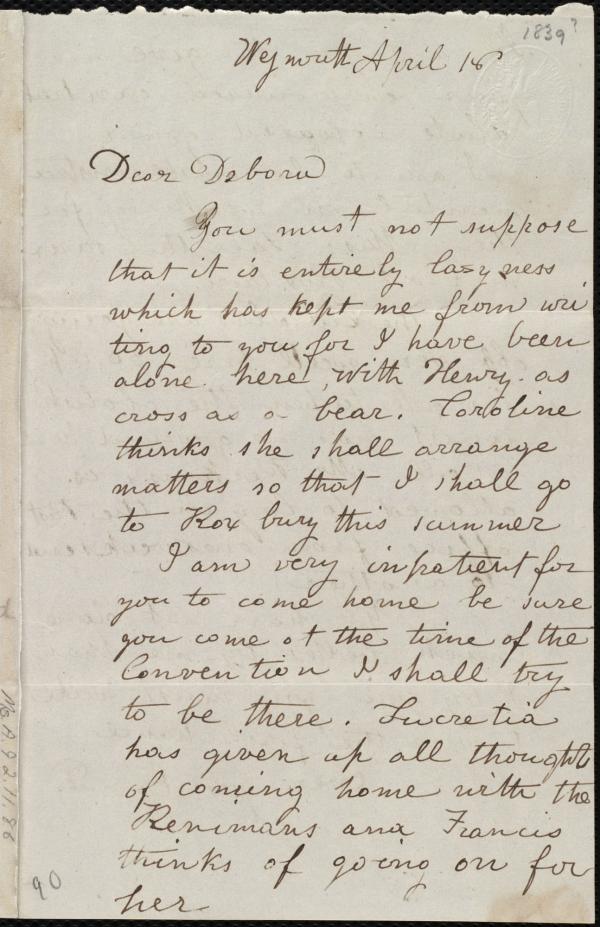 1839?
Weymouth April 18
Dear Deborah
You must not suppose
that it is entirely lazyness
which has kept me from wri
ting to you for I have been
alone here, with Henry as
cross as a bear. Caroline
thinks she shall arrange
matters so that I shall go
to Roxbury this summer
I am very inpatient for
you to come home be sure
you come at the time of the
Convention I shall try
to be there. Lucretia
has given up all thought
of coming home with the
and Francis
thinks of going on for
her
90
Ms.A.9.2.11.86